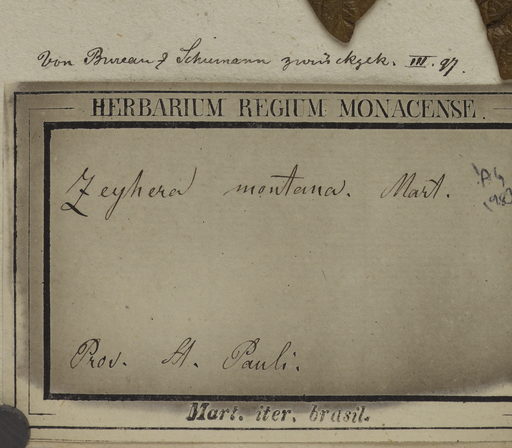 Von Bureau & Schumann zurückgek. III. 97.
HERBARIUM REGIUM MONACENSE.
Zeyhera montana. Mart.
Prov. St. Pauli.
Mart. iter. brasil.